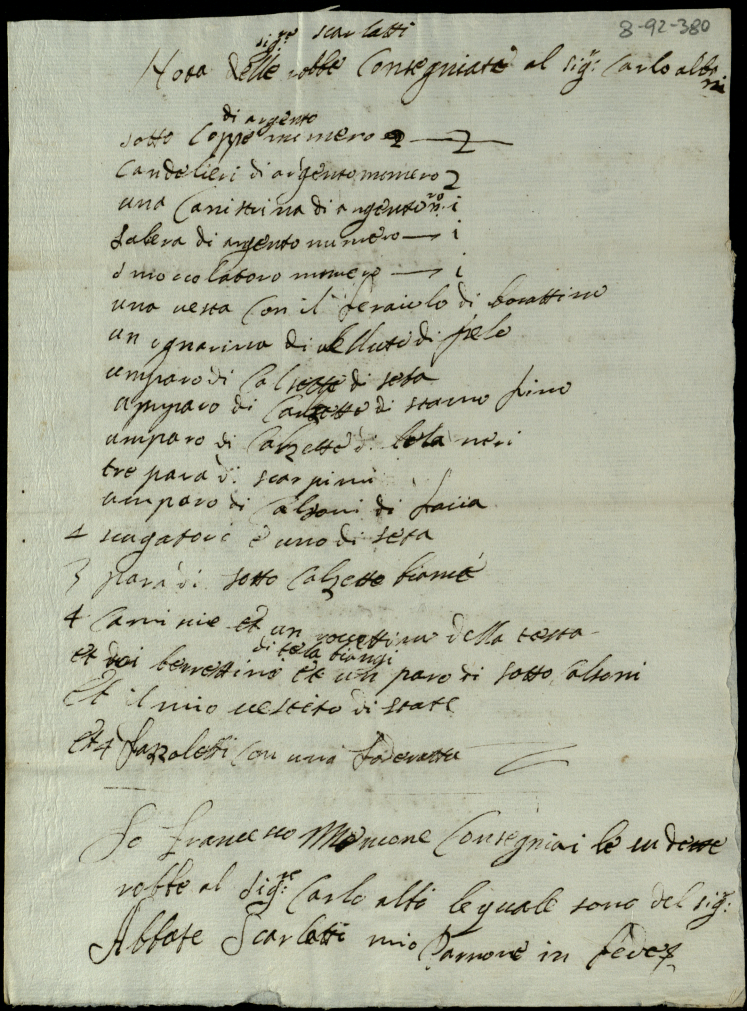 8-92-380
sig.re scarlatti
Nota delle robbe Consegniate al sig.r Carlo albi
di argento
sotto Coppe numero 2 — 2
Candelieri di argento numero 2
una Canistrina di argento n.ro i
Saliera di argento numero — i
smoccolatoro numero — i
una vesta Con il feraiolo di borattino
un ognarina di velluto di pelo
umparo di Calsette di seta
umparo di Calzette di stame fino
umparo di Calzette di neri
tre para di scarpini
umparo di Calsoni di
4 sciugatori è uno di seta
3 para di sotto Calzette bianche
4 Camicie et un della testa
di tela bianci
et doi berrettini et un paro di sotto Calsoni
Et il mio vestito di state
et 4 fazzoletti Con una foderatta
Io Francesco Consegniai le su dette
robbe al Sig.re Carlo albi le quale sono del sig.r
Abbate Scarlatti mio Patrone in fede